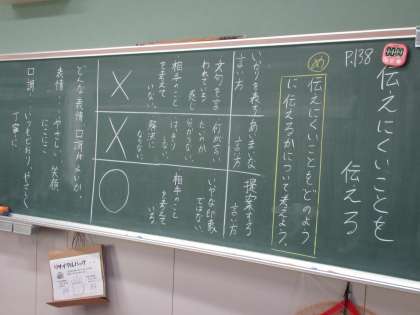 P.138
伝えにくいことを
伝えろ
め
伝えにくいことをどのよう
に伝えるかについて考えよう。
いかりを表す
言い方
あいまいな
言い方
提案する
言い方
文句を言
われている
感じ
相手のこと
を考えて
いない。
何が言い
たいのか
分からない。
はっきり
しない
解決に
ならない。
いやな印象
ではない。
相手のこと
を考えて
いる。
×
×
○
どんな表情、口調がよいか。
表情…やさしい、笑顔、
にこにこ
口調…いつもどおり、やさしく、
丁寧に
リサイクルパック